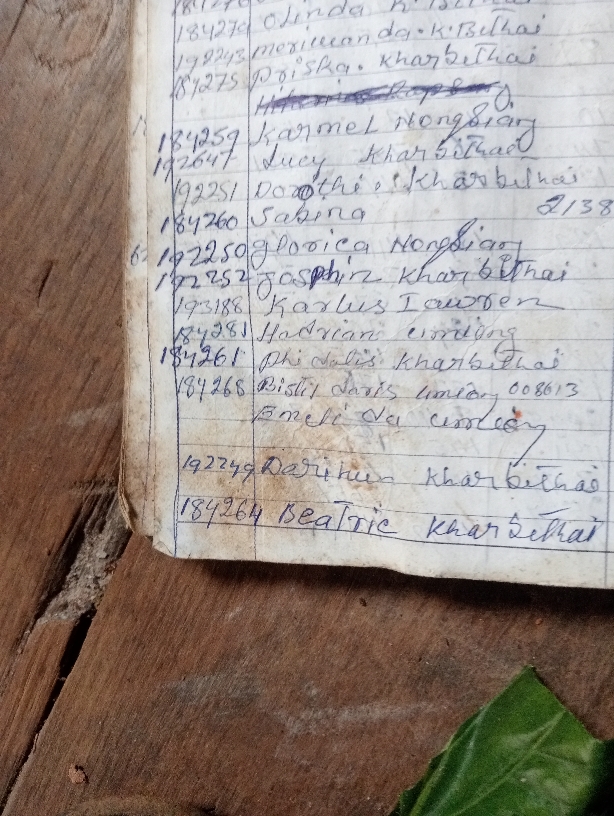 Olinda K. Bithai
184279 Merimanda. K. Bithai
192243 Priska. Kharbithai
184275
184259 Karmel Nongsiang
192647 Lucy Kharbithai
192251 Dorothi. Kharbithai
184260 Sabina 2138
192250 Glorica Nongsiang
192252 Josphin Kharbithai
193188 Karlus Iawren
184281 Hadriana umiong
184261 Phidalis Kharbithai
184268 umiong 008613
da umiong
192249 Darihun Kharbithai
184264 Beatric Kharbithai